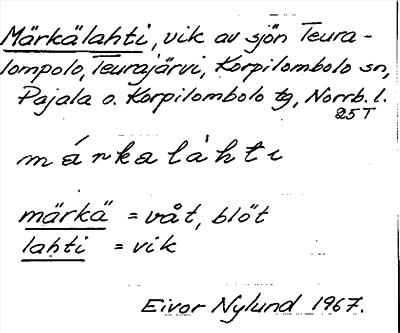 Märkälahti, vik av sjön Teura-
lompolo, Teurajärvi, Korpilombolo sn,
Pajala o. Korpilombolo tg, Norrb. l.
25 I
märkälahti
märkä = våt, blöt
lahti = vik
Eivor Nylund 1967.